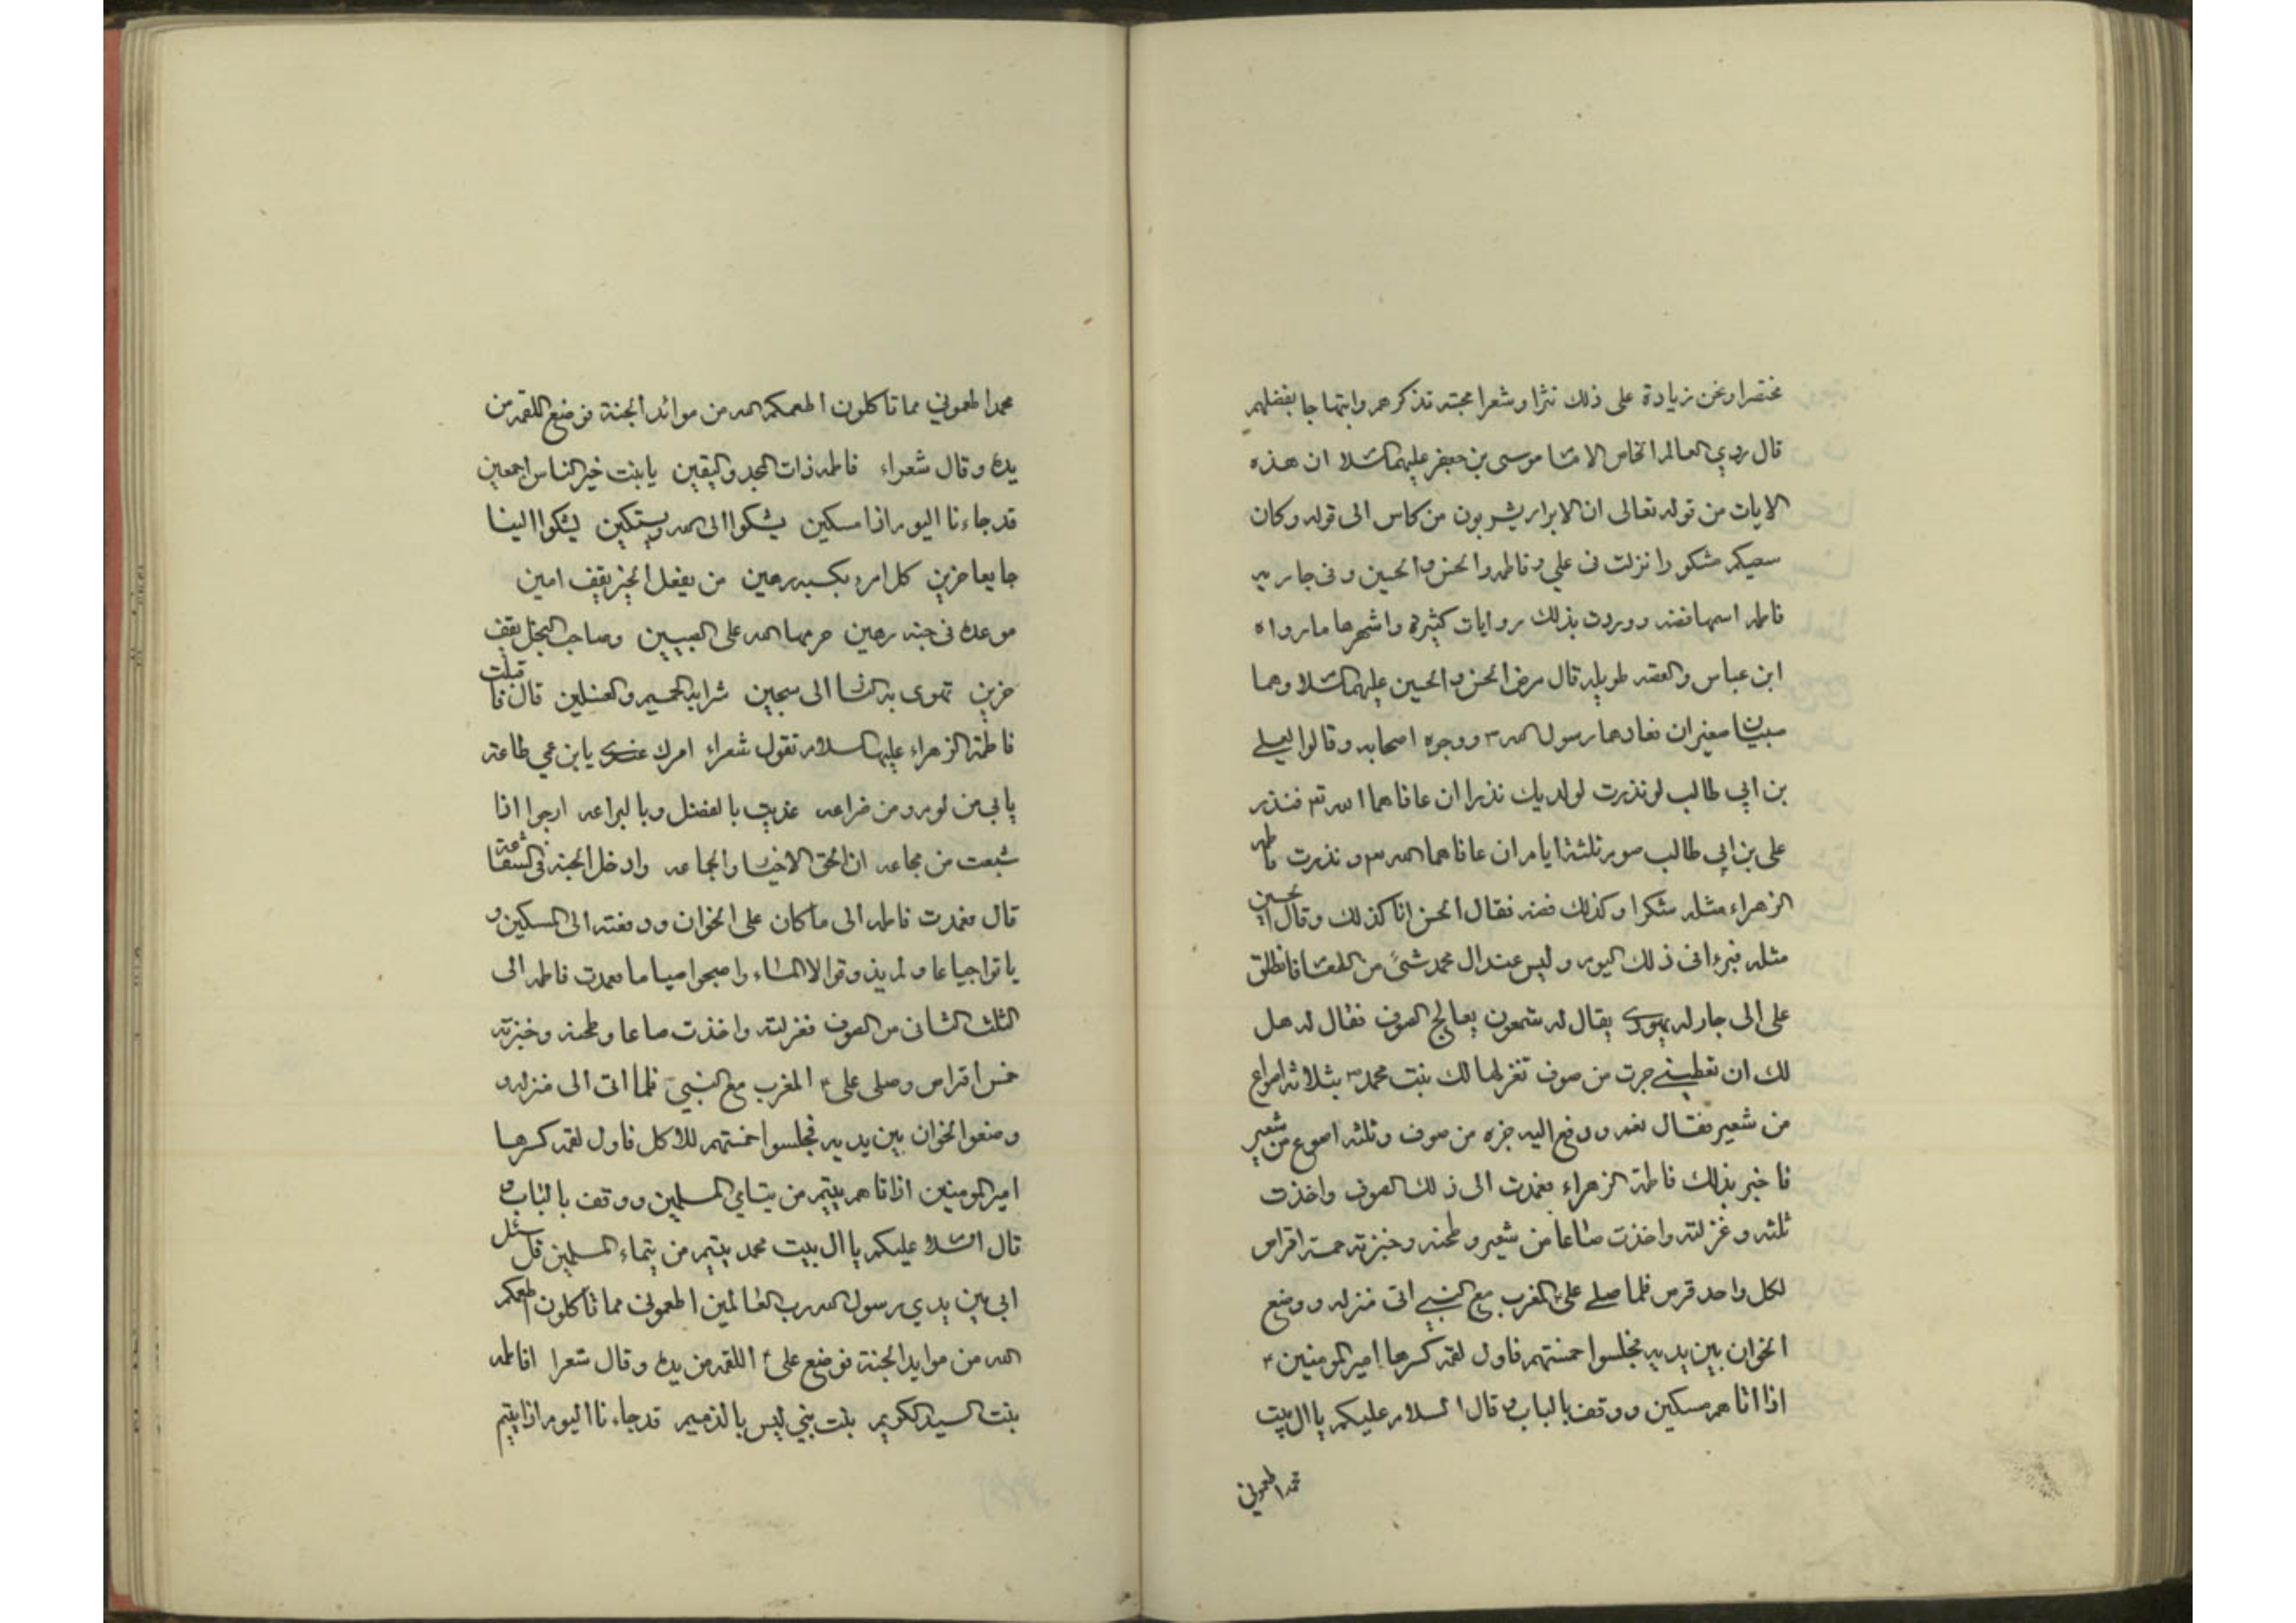 مختصرا ونحن نزيادة على ذلك نثرا وشعرا محبته تذكرهم وابتهاجا بفضلهم
قال روي العالم الخاص الامام موسى بن جعفر عليهما السلام ان هذه
الايات من قوله تعالى ان الابرار يشربون من كاس الى قوله وكان
سعيكم مشكورا نزلت فى علي وفاطمه والحسن والحسين وفى جاريه
فاطمه اسمها فضه ووردت بذلك روايات كثيرة واشهرها ما رواه
ابن عباس والقصه طويله قال مرض الحسن والحسين عليهما السلام وهما
صبيان صغيران فعادهما رسول الله ص ووجوه اصحابه وقالوا لعلي
بن ابي طالب لو نذرت لولديك نذرا ان عافاهما الله تع فنذر
على بن ابي طالب صوم ثلثة ايام ان عافاهما الله و نذرت فاطمه
الزهراء مثله شكرا وكذلك فضه فقال الحسن انا كذلك وقال الحسين
مثله فبرءا فى ذلك اليوم و ليس عند ال محمد شئ من الطعام فانطلق
على الى جار له يهودى يقال له شمعون يعالج الصوف فقال له هل
لك ان تعطيني جزت من صوف تغزلها لك بنت محمد ص بثلاثه اصواع
من شعير فقال نعم ودفع اليه جزه من صوف وثلثه اصوع من شعير
فاخبر بذلك فاطمة الزهراء فعمدت الى ذلك الصوف واخذت
ثلثه وغزلته واخذت صاعا من شعير وطحنه وخبزته خمسة اقراص
لكل واحد قرص فلما صلى على المغرب مع النبي اتى منزله ووضع
الخوان بين يديه فجلسوا خمستهم فاول لقمه كسرها امير المومنين ع
اذا اتاهم مسكين ووقف بالباب و قال السلام عليكم يا ال بيت
محمد اطعمونى
محمد اطعمونى مما تاكلون اطعمكم الله من موائد الجنة فوضع اللقمه من
يده وقال شعراء فاطمه ذات المجد واليقين يا بنت خير الناس اجمعين
قد جاءنا اليوم اذا مسكين يشكوا الى الله ويستكين يشكوا الينا
جايعا حزين كل امرء بكسبه رهين من يفعل الخير يقف امين
موعده فى جنه رهين حرمها الله على الضنين وصاحب البخل يقف
حزين تهوى به النار الى سجين شرابه الحميم والغسلين قال فاقبلت
فاطمة الزهراء عليها السلام تقول شعراء امرك عندى يا بن عمي طاعته
يا بي من لوم ومن ضراعه غذيت بالفضل وبالبراعه ارجوا اذا
شبعت من مجاعه ان الحق الاخيار والجماعه وادخل الجنه فى الشفاعة
قال فعمدت فاطمه الى ما كان على الخوان ودفعته الى المسكين و
باتوا جياعا ولم يذوقوا الا الماء واصبحوا صياما فعمدت فاطمه الى
الثلث الثانى من الصوف فغزلته واخذت صاعا وطحنه وخبزته
خمس اقراص وصلى على ع المغرب مع النبي فلما اتى الى منزله و
وضعوا الخوان بين يديه فجلسوا خمستهم للاكل فاول لقمه كسرها
امير المومنين اذا اتاهم يتيم من يتامي المسلمين ووقف بالباب و
قال السلام عليكم يا ال بيت محمد يتيم من يتماء المسلمين قتل
ابى بين يدي رسول الله رب العالمين اطعمونى مما تاكلون اطعمكم
الله من موايد الجنة فوضع على اللقمه من يده وقال شعرا افاطمه
بنت السيد الكريم بنت نبي ليس بالذميم قد جاءنا اليوم اذا يتيم